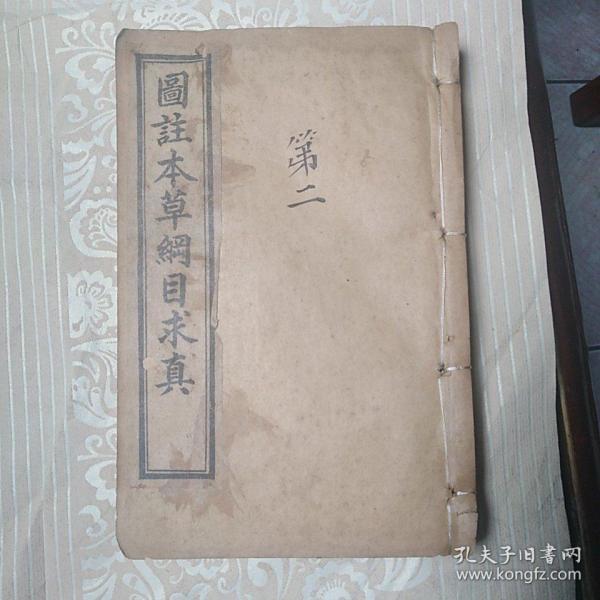 圖註本草綱目求真
第二
孔夫子旧书网
www.kongfz.com